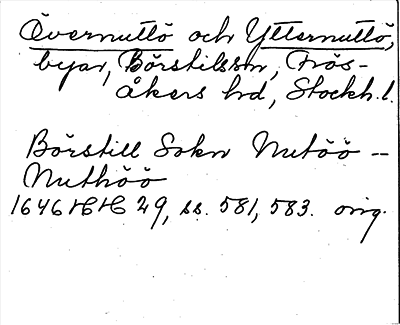 Övernuttö och Ytternuttö,
byar, Börstilssn, Frös-
åkers hd, Stockh. l.
Börstill Sokn Nutöö --
Nuthöö
1646 HH 29, ss. 581, 583. orig.